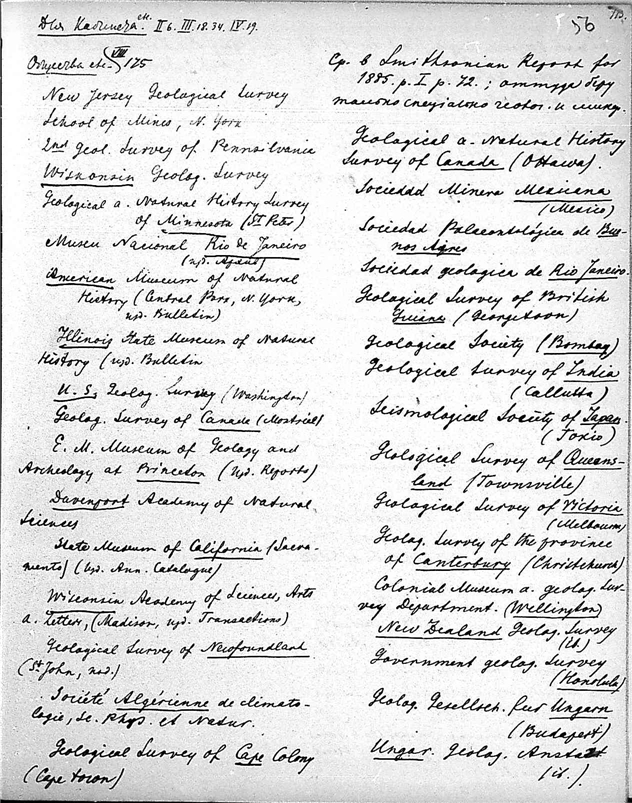 Для Кабинета etc. II 6. III. 18. 34. IV. 19.
56
113.
Общества etc. VIII 175
New Jersey Geological Survey
School of Mines, N. York
2nd Geol. Survey of Pennsilvania
Wisconsin Geolog. Survey
Geological a. Natural History Survey
of Minnesota (St Peter)
Museu Nacional Rio de Janeiro
American Museum of Natural
History (Central Parc, N. York,
изд. Bulletin)
Illinois State Museum of Natural
History (изд. Bulletin
U. S. Geolog. Survey (Washington)
Geolog. Survey of Canada (Montréal)
E. M. Museum of Geology and
Archeology at Princeton (изд. Reports)
Davenport Academy of Natural
Sciences
State Museum of California (Sacra-
mento) (изд. Ann. Catalogue)
Wisconsin Academy of Sciences, Arts
a. Letters, (Madison, изд. Transactions)
Geological Survey of Newfoundland
(St John, изд.)
Société Algérienne de climato-
logie, Sc. Phys. et Natur.
Geological Survey of Cape Colony
(Cape town)
Ср. в Smithsonian Report for
1885. p. I p. 72. ; оттуда беру
только специально геолог. и
Geological a. Natural History
Survey of Canada (Ottawa).
Sociedad Minera Mexicana
(Mexico)
Sociedad Palaeontológica de Bue-
nos Ayres
Sociedad geologica de Rio Janeiro.
Geological Survey of British
Guiana (Georgetown)
Geological Society (Bombay)
Geological Survey of India
(Calcutta)
Seismological Society of Japan
(Tokio)
Geological Survey of Queens-
land (Townsville)
Geological Survey of Victoria
(Melbourn)
Geolog. Survey of the province
of Canterbury (Christchurch)
Colonial Museum a. geolog. Sur-
vey Department. (Wellington)
New Zealand Geolog. Survey
(id.)
Government geolog. Survey
(Honolulu)
Geolog. Gesellsch. für Ungarn
(Budapest)
Ungar. Geolog. Anstalt
(id.).